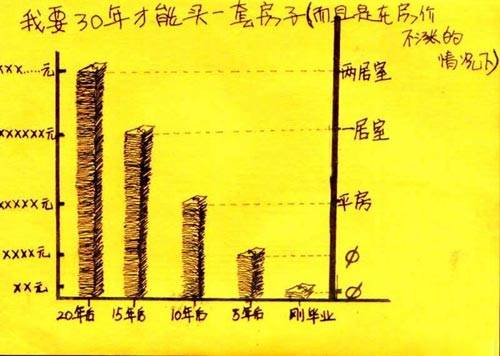 我要30年才能买一套房子(而且是在房价
不涨的
情况下)
xxx……元
两居室
xxxxxx元
一居室
xxxxx元
平房
xxxx元
ø
xx元
ø
20年后 15年后 10年后 5年后 刚毕业